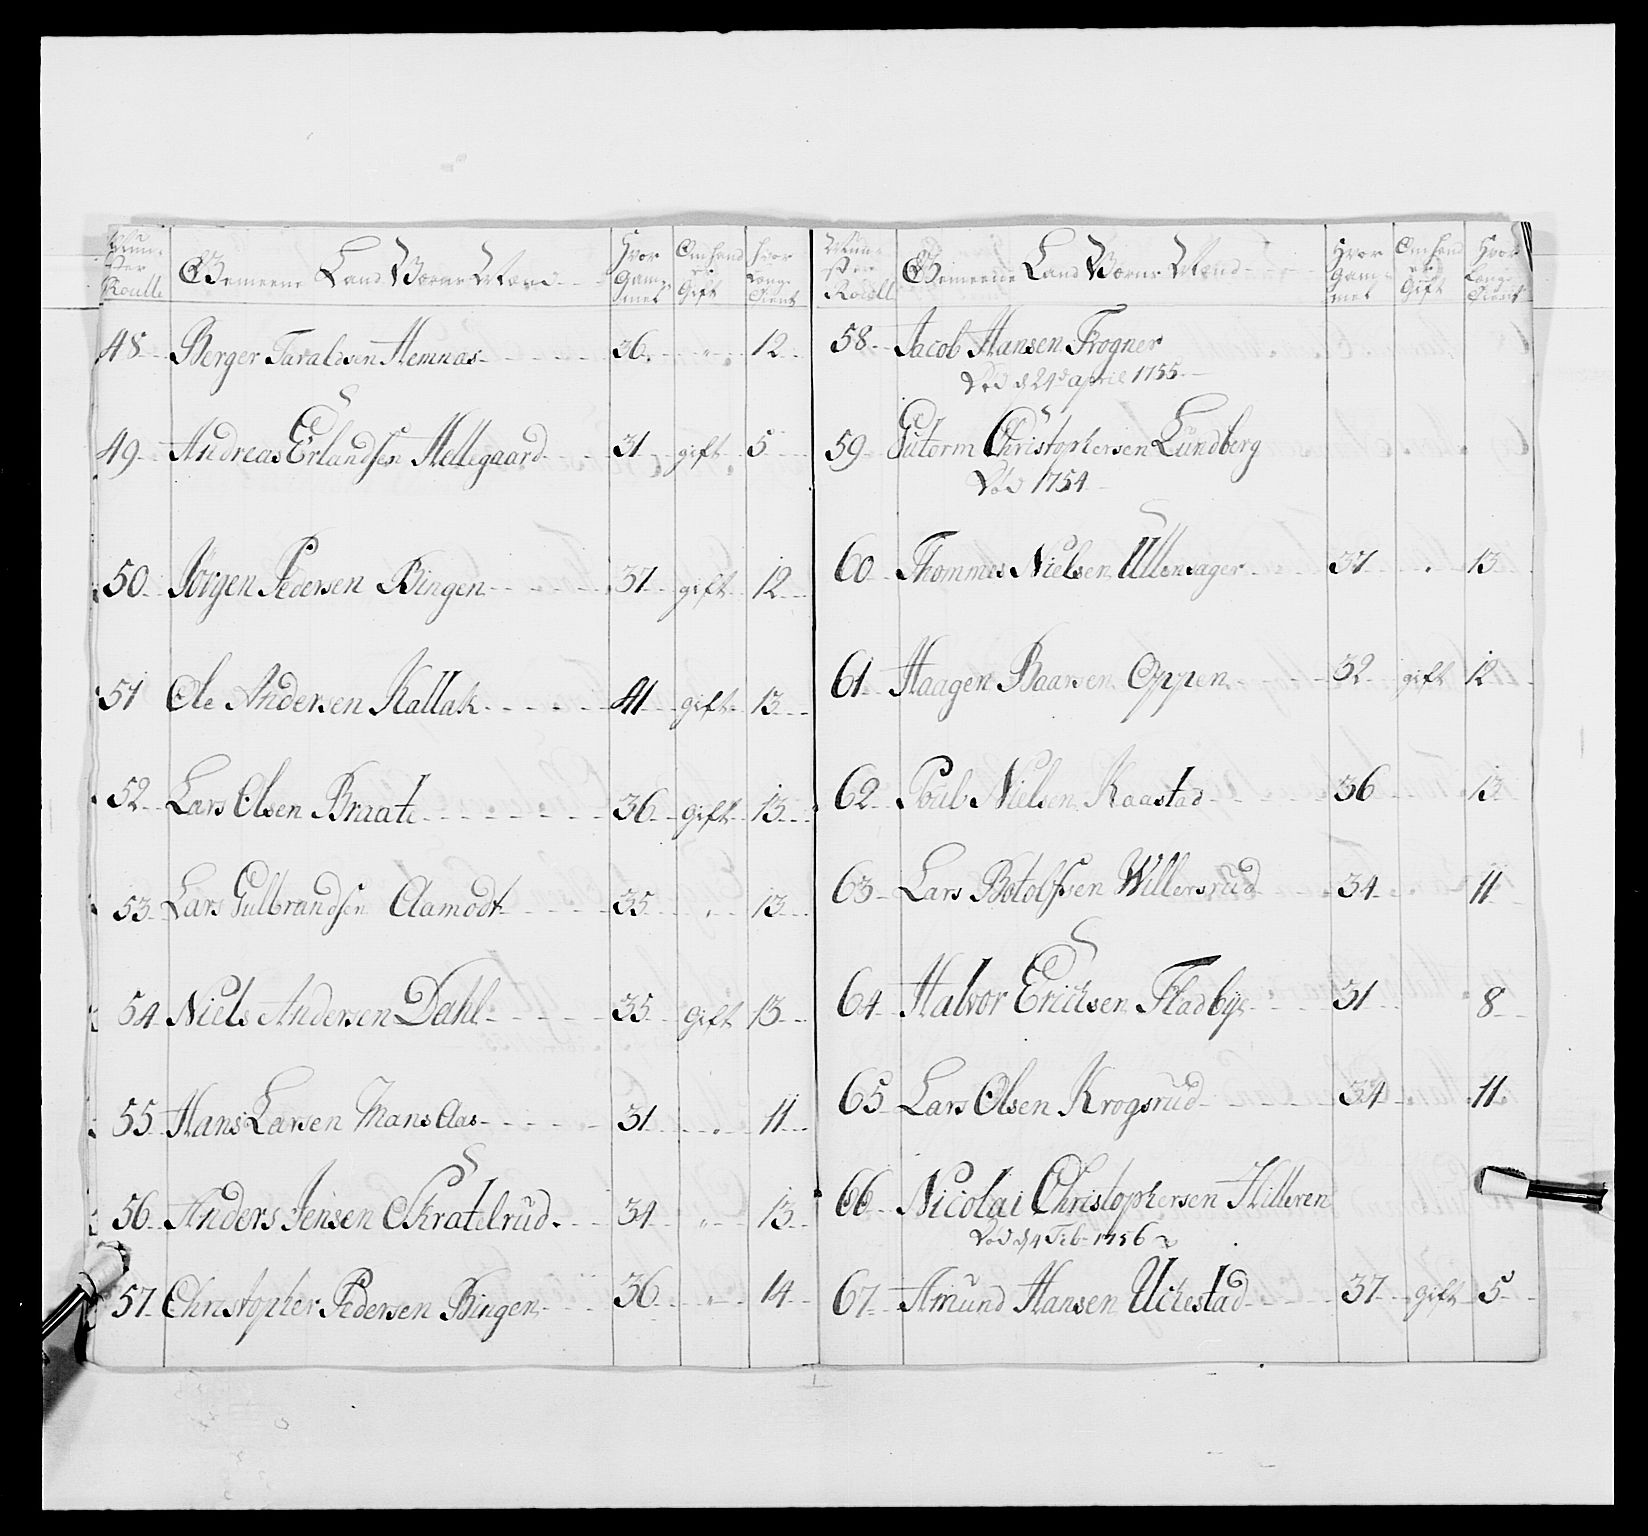 Mun-
ster
Roulle
Gemeene Land Værns Mænd
Hvor
Gam-
mel
Om hand
er
Gift
hvor
Long
Tient
48 Berger Taraldsen Hemnæs 36 " 12
49 Andreas Erlandsen Mellegaard 31 gift 5
50 Jörgen Pedersen Bingen 37 gift 12
51 Ole Andersen Kallak 41 gift 13
52 Lars Olsen Braate 36 gift 13
53 Lars Gulbrandsen Aamodt 35 " 13
54 Niels Andersen Dahl 35 gift 13
55 Hans Larsen Mans Aas 31 " 11
56 Anders Jensen Skratelrud 34 " 13
57 Christopher Pedersen Bingen 36 " 14
Mun-
ster
Roull
Gemeene Land Værns Mænd
Hvor
Gam-
mel
Om hand
er
Gift
Hvor
Long
Tient
58 Jacob Hansen Frogner
Död d 24de april 1755
59 Gutorm Christophersen Lundberg
Död 1754
60 Thommes Nielsen Ullensager 37 13
61 Haagen Baarsen Oppen 32 gift 12
62 Poul Nielsen Kaastad 36 13
63 Lars Botolfsen Willersrud 34 11
64 Halvor Ericksen Fladbye 31 8
65 Lars Olsen Krogsrud 34 11
66 Nicolai Christophersen Hilleren
Död d 4 Feb 1756
67 Amund Hansen Uckestad 37 gift 5